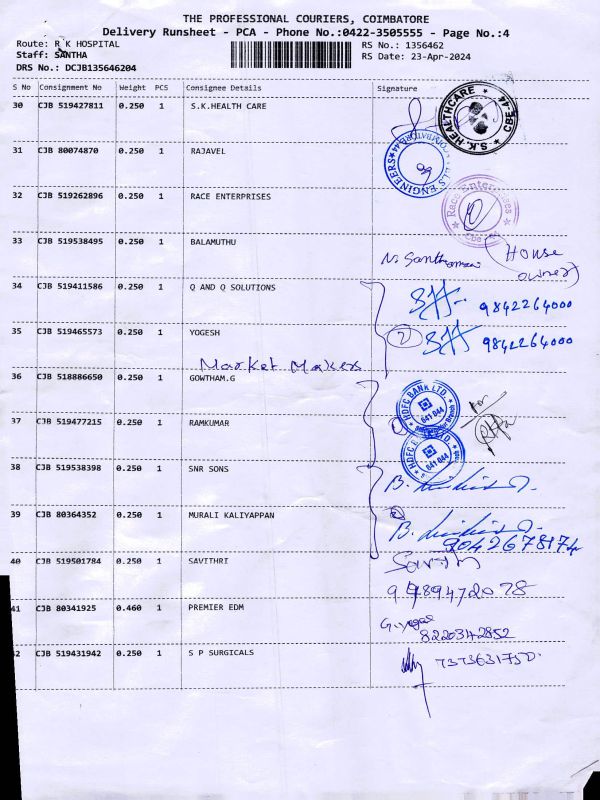 THE PROFESSIONAL COURIERS, COIMBATORE
Delivery Runsheet - PCA - Phone No.:0422-3505555 - Page No.:4
Route: R K HOSPITAL
RS No.: 1356462
Staff: SANTHA
RS Date: 23-Apr-2024
DRS No.: DCJB135646204
S No Consignment No Weight PCS Consignee Details Signature
30 CJB 519427811 0.250 1 S.K.HEALTH CARE
S.K. HEALTHCARE CBE-44
31 CJB 80074870 0.250 1 RAJAVEL
ENGINEERS
32 CJB 519262896 0.250 1 RACE ENTERPRISES
Race Enterprises
33 CJB 519538495 0.250 1 BALAMUTHU
(House
owner)
34 CJB 519411586 0.250 1 Q AND Q SOLUTIONS
9842264000
35 CJB 519465573 0.250 1 YOGESH
2 9842264000
Market Makers
36 CJB 518886650 0.250 1 GOWTHAM.G
HDFC BANK LTD.
641 044
37 CJB 519477215 0.250 1 RAMKUMAR
641 044
38 CJB 519538398 0.250 1 SNR SONS
39 CJB 80364352 0.250 1 MURALI KALIYAPPAN
9042678174
40 CJB 519501784 0.250 1 SAVITHRI
41 CJB 80341925 0.460 1 PREMIER EDM
8220342852
42 CJB 519431942 0.250 1 S P SURGICALS
7373631750